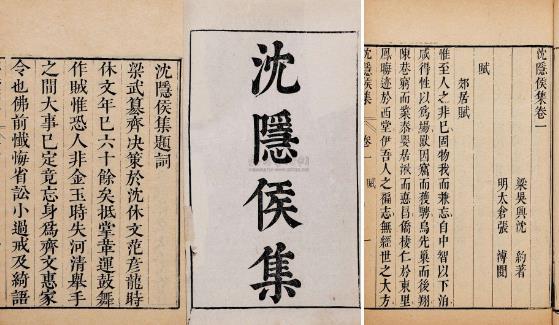 沈隱侯集題詞
梁武篡齊决策於沈休文范彥龍時
休文年已六十餘矣抵掌革運鼓舞
作賊惟恐人非金玉時失河清舉手
之間大事已定竟忘身為齊文惠家
令也佛前懺悔省訟小過戒及綺語
沈隱侯集
沈隱侯集卷一
梁吳興沈 約著
明太倉張 溥閱
賦
郊居賦
惟至人之非已固物我而兼忘自中智以下洎
咸得性以為場獸因窟而獲騁鳥先巢而後翔
陳巷窮而業泰嬰居湫而德昌僑棲仁於東里
鳳晦迹於西堂伊吾人之褊志無經世之大方
沈隱侯集 卷一 賦